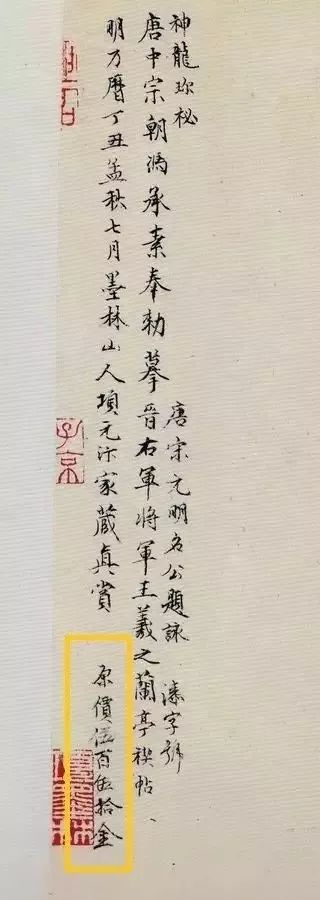 神龍珎祕　唐宋元明名公題詠　溱字號
唐中宗朝馮承素奉勅摹晉右軍將軍王羲之蘭亭禊帖
明万曆丁丑孟秋七月墨林山人項元汴家藏真賞　原價伍百伍拾金
子京